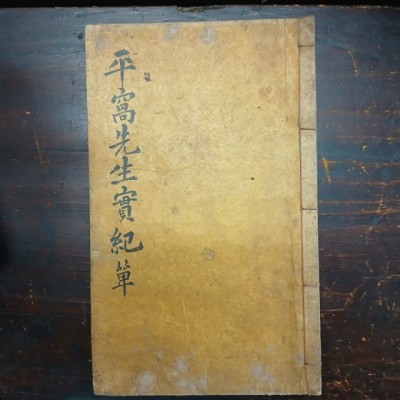 平窩先生實紀單